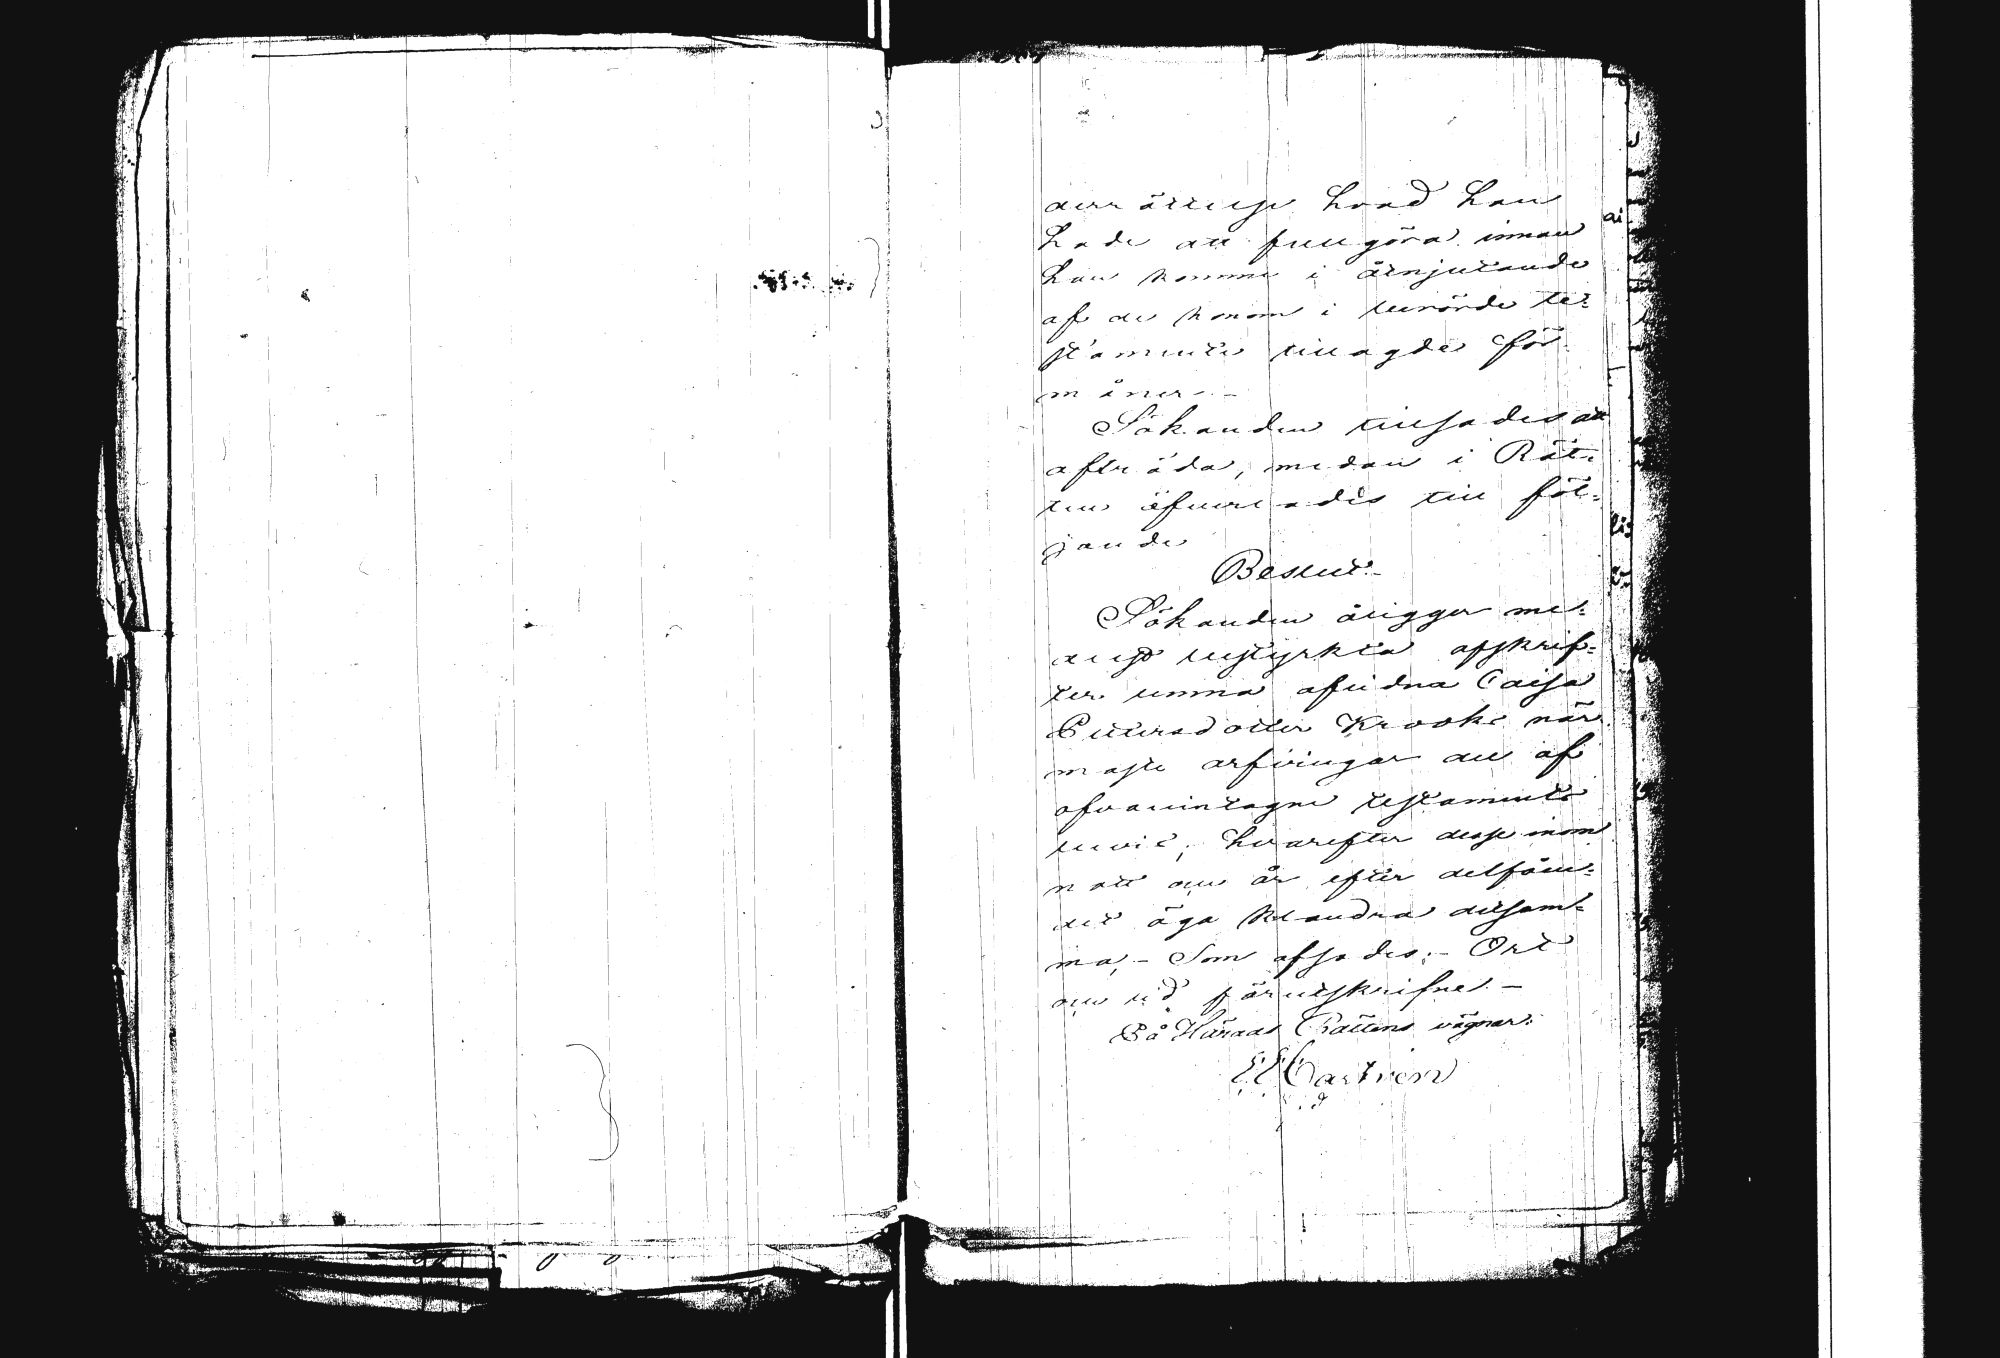 derrättelse hvad han
hade att fullgöra innan
han komme i åtnjutande
af de honom i berörde te-
stamente tillagde för
måner. -
Sökanden tillsades att
afträda, medan i Rät-
ten öfverlades till föl-
jande
Beslut. -
Sökanden åligger me-
delst bestyrkta afskrif-
ter lemna aflidna Caisa
Pettersdotter Krooks när
maste arfvingar del af
ofvanintagne testamente
bevis, hvarefter desse inom
natt och år efter delfåen-
det äga klandra detsam-
ma, - Som afsades; - Ort
och tid förutskrifne. -
På Härads Rättens vägnar: